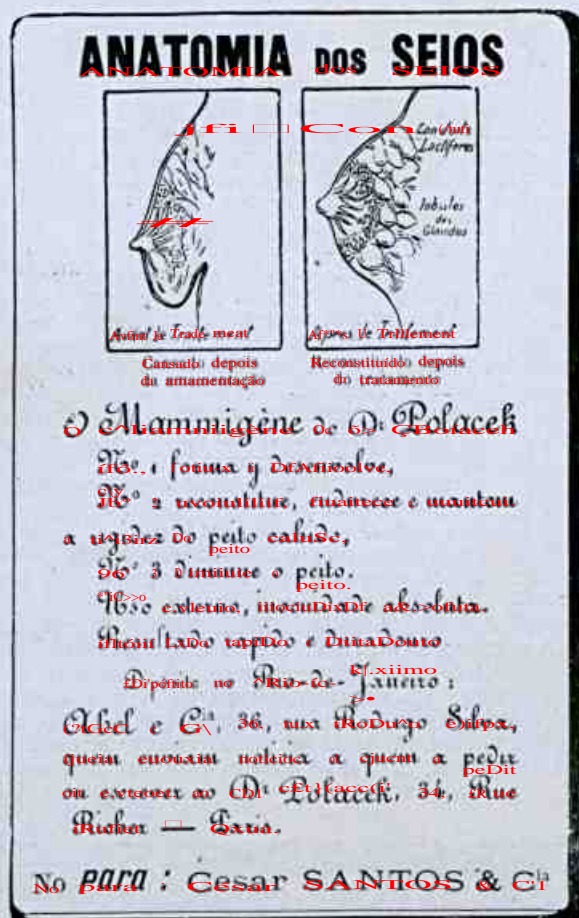 ANATOMIA DOS SEIOS
Conduits
Lactifères
lobules
des
Glandes
Avant le Traitement
Après le Traitement
Cansado depois
da amamentação
Reconstituido depois
do tratamento
O Mammigène do Dr Polacek
Nº 1 forma y desenvolve,
Nº 2 reconstitue, endurece e mantem
a rigidez do peito cahido,
Nº 3 diminue o peito.
Uso externo, inocuidade absoluta.
Resultado rapido e duradouro
Deposito no Rio-de-Janeiro:
Abel e Cia, 36, rua Rodrigo Silva,
quem enviam noticia a quem a pedir
ou escrever ao Dr Polacek, 34, Rue
Richer — Paris.
No Pará: Cesar SANTOS & Cia